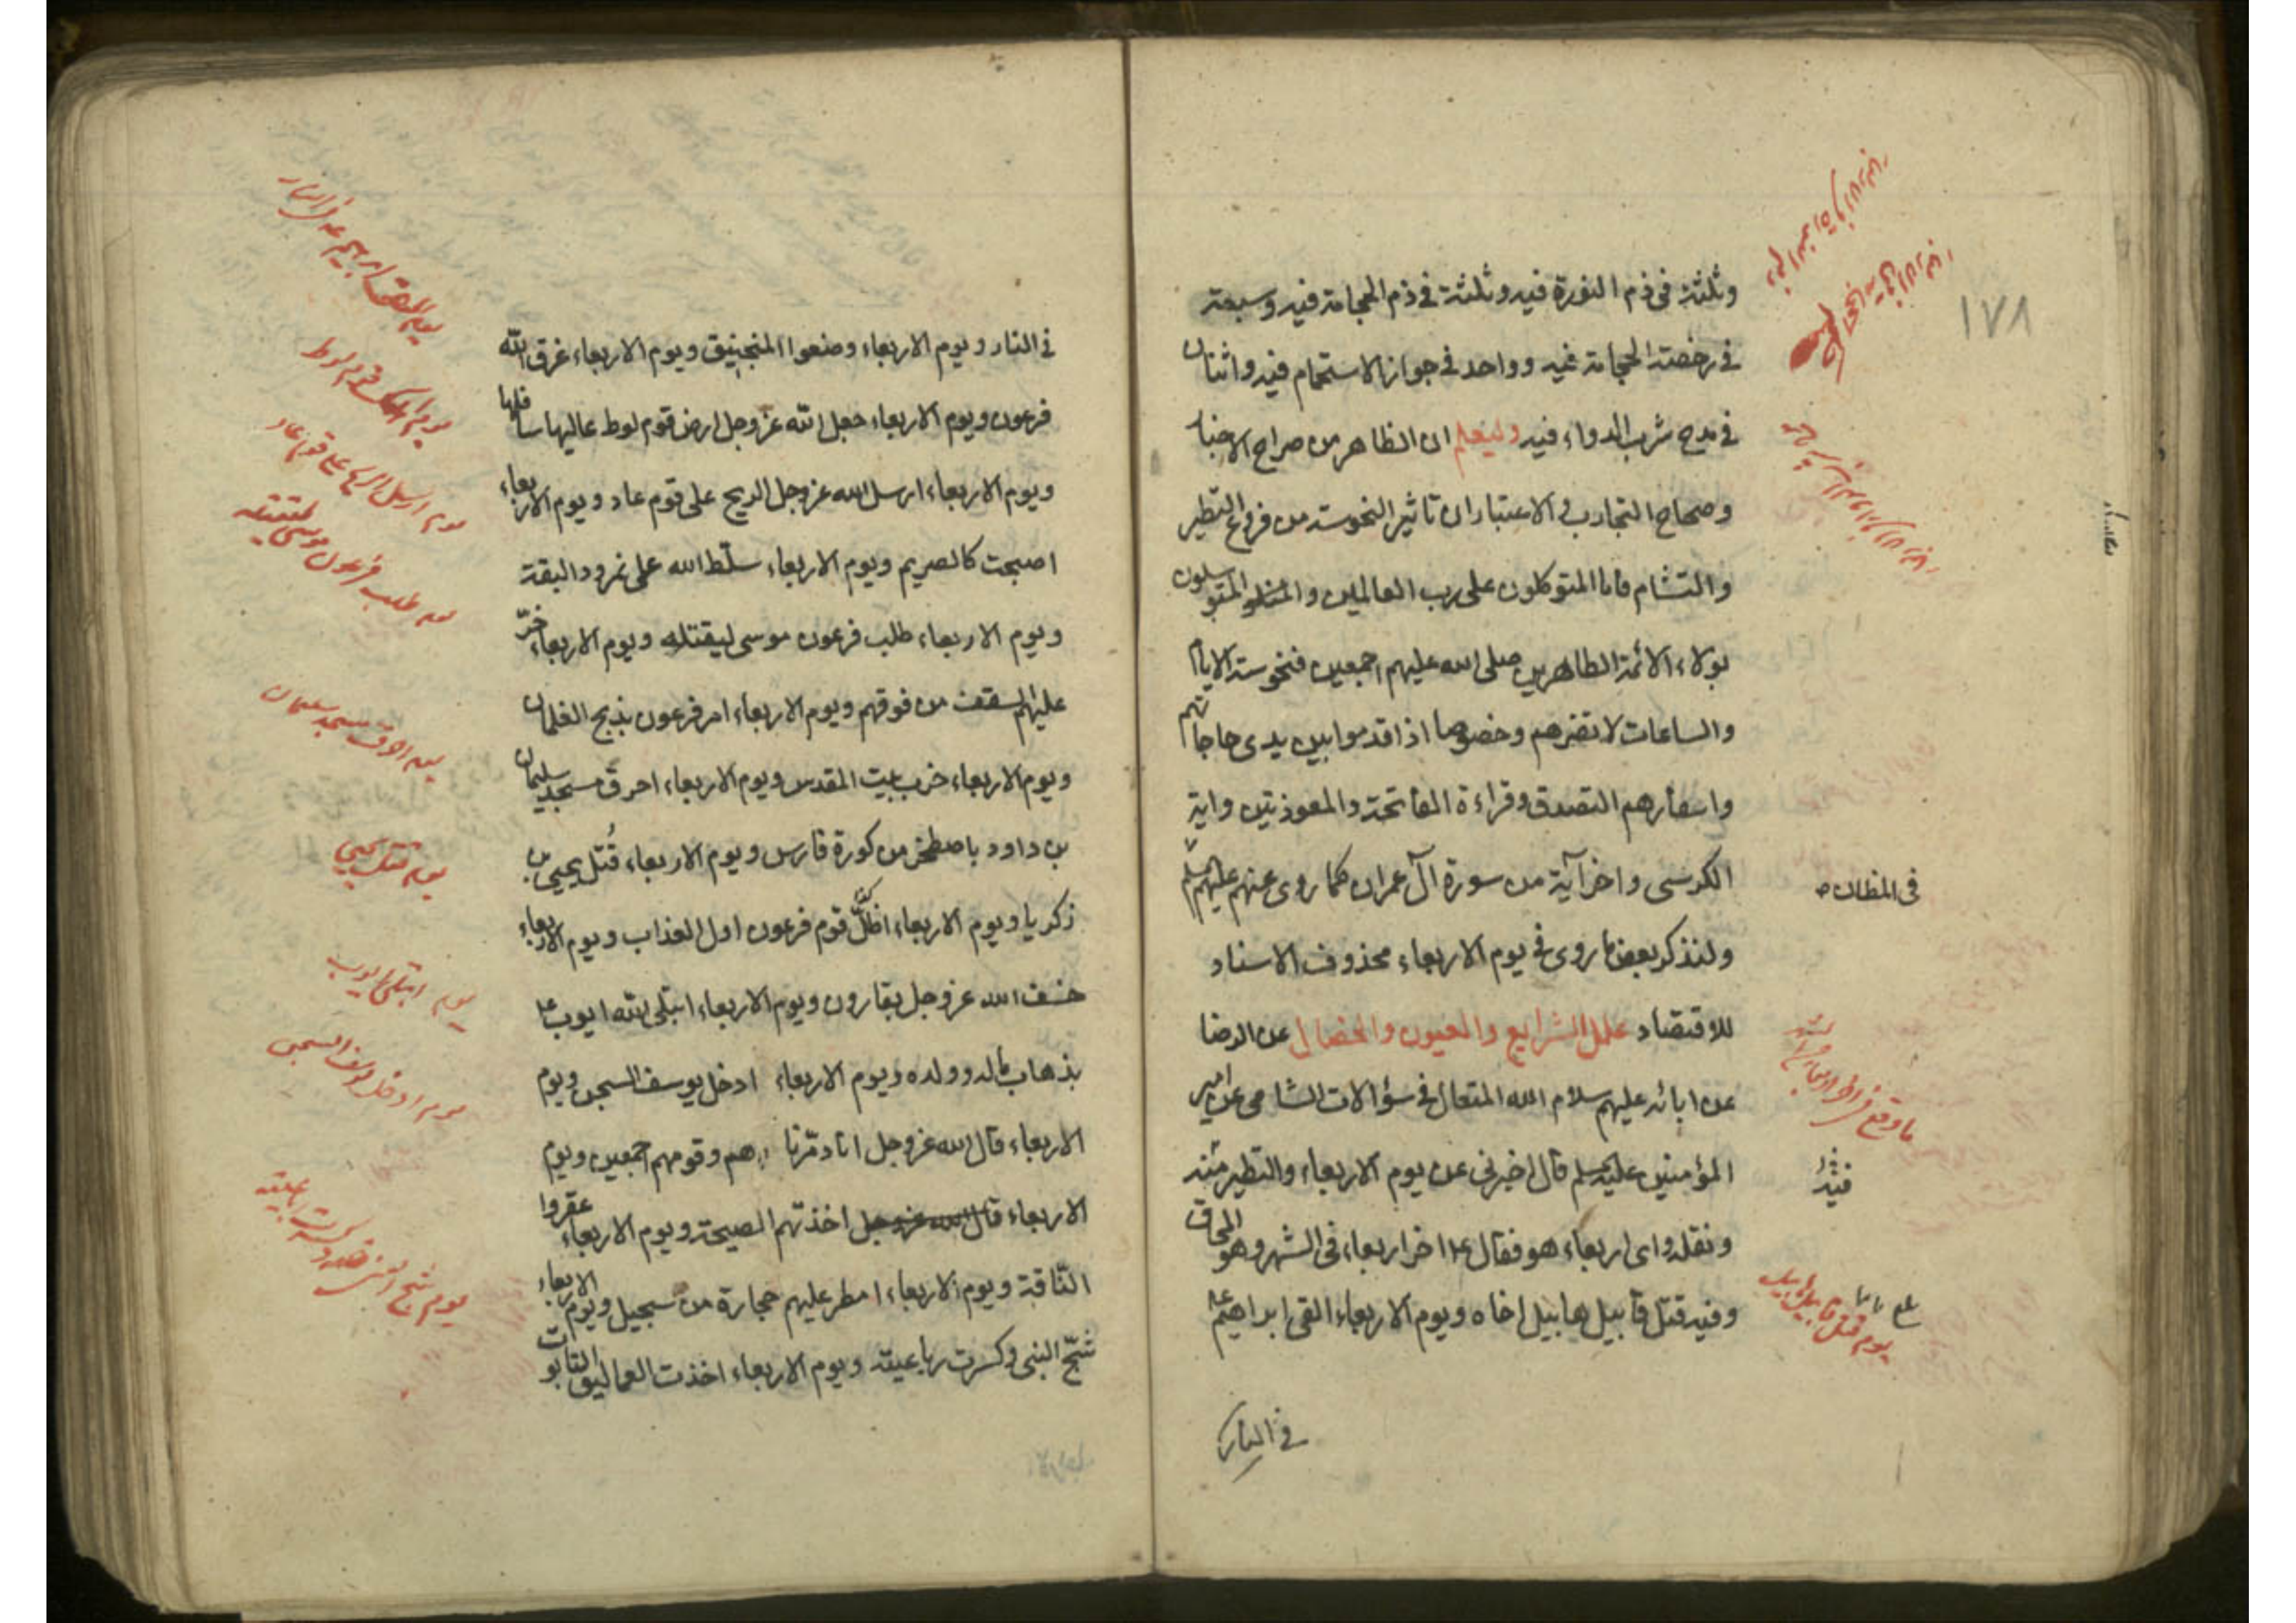 ١٧٨
وثلثة في ذم النورة فيه وثلثة في ذم الحجامة فيه وسبعة
في رخصة الحجامة فيه وواحد في جواز الاستحمام فيه واثنان
في مدح شرب الدواء فيه وليعلم ان الظاهر من صراح الاخبار
وصحاح التجارب والاعتبار ان تاثير النحوسة من فروع التطير
والتشام فاما المتوكلون على رب العالمين والمتوسلون
بولاء الائمة الطاهرين صلى الله عليهم اجمعين فنحوسة الايام
والساعات لا تضرهم وخصوصا اذا قدموا بين يدي حاجاتهم
واسفارهم التصدق وقراءة الفاتحة والمعوذتين واية
الكرسي واخر آية من سورة آل عمران كما روي عنهم عليهم السلم
في المظان
ولنذكر بعض ما روي في يوم الاربعاء محذوف الاسناد
للاقتصاد علل الشرايع والعيون والخصال عن الرضا
عن ابائه عليهم سلام الله المتعال في سؤالات الشامي عن امير
المؤمنين عليه السلم قال اخبرني عن يوم الاربعاء والتطير منه
وثقله واى اربعاء هو فقال ع اخر اربعاء في الشهر وهو المحاق
وفيه قتل قابيل هابيل اخاه ويوم الاربعاء القي ابراهيم ع
يوم قتل قابيل هابيل
في النار
في النار ويوم الاربعاء وضعوا المنجنيق ويوم الاربعاء غرق الله
فرعون ويوم الاربعاء جعل الله عز وجل ارض قوم لوط عاليها سافلها
ويوم الاربعاء ارسل الله عز وجل الريح على قوم عاد ويوم الاربعاء
اصبحت كالصريم ويوم الاربعاء سلّط الله على نمرود البقة
ويوم الاربعاء طلب فرعون موسى ليقتله ويوم الاربعاء خرّ
عليهم السقف من فوقهم ويوم الاربعاء امر فرعون بذبح الغلمان
ويوم الاربعاء خرب بيت المقدس ويوم الاربعاء احرق مسجد سليمان
بن داود باصطخر من كورة فارس ويوم الاربعاء قُتل يحيى بن
زكريا ويوم الاربعاء اظلّ قوم فرعون اول العذاب ويوم الاربعاء
خسف الله عز وجل بقارون ويوم الاربعاء ابتلى الله ايوب ع
بذهاب ماله وولده ويوم الاربعاء ادخل يوسف السجن ويوم
الاربعاء قال الله عز وجل انا دمّرناهم وقومهم اجمعين ويوم
الاربعاء قال الله عز وجل اخذتهم الصيحة ويوم الاربعاء عقروا
الناقة ويوم الاربعاء امطر عليهم حجارة من سجيل ويوم الاربعاء
شجّ النبي وكسرت رباعيته ويوم الاربعاء اخذت العماليق التابوت
يوم ارسل الريح على قوم عاد
يوم طلب فرعون موسى ليقتله
يوم احرق مسجد سليمان
يوم قتل يحيى
يوم ابتلى ايوب
يوم ادخل يوسف السجن